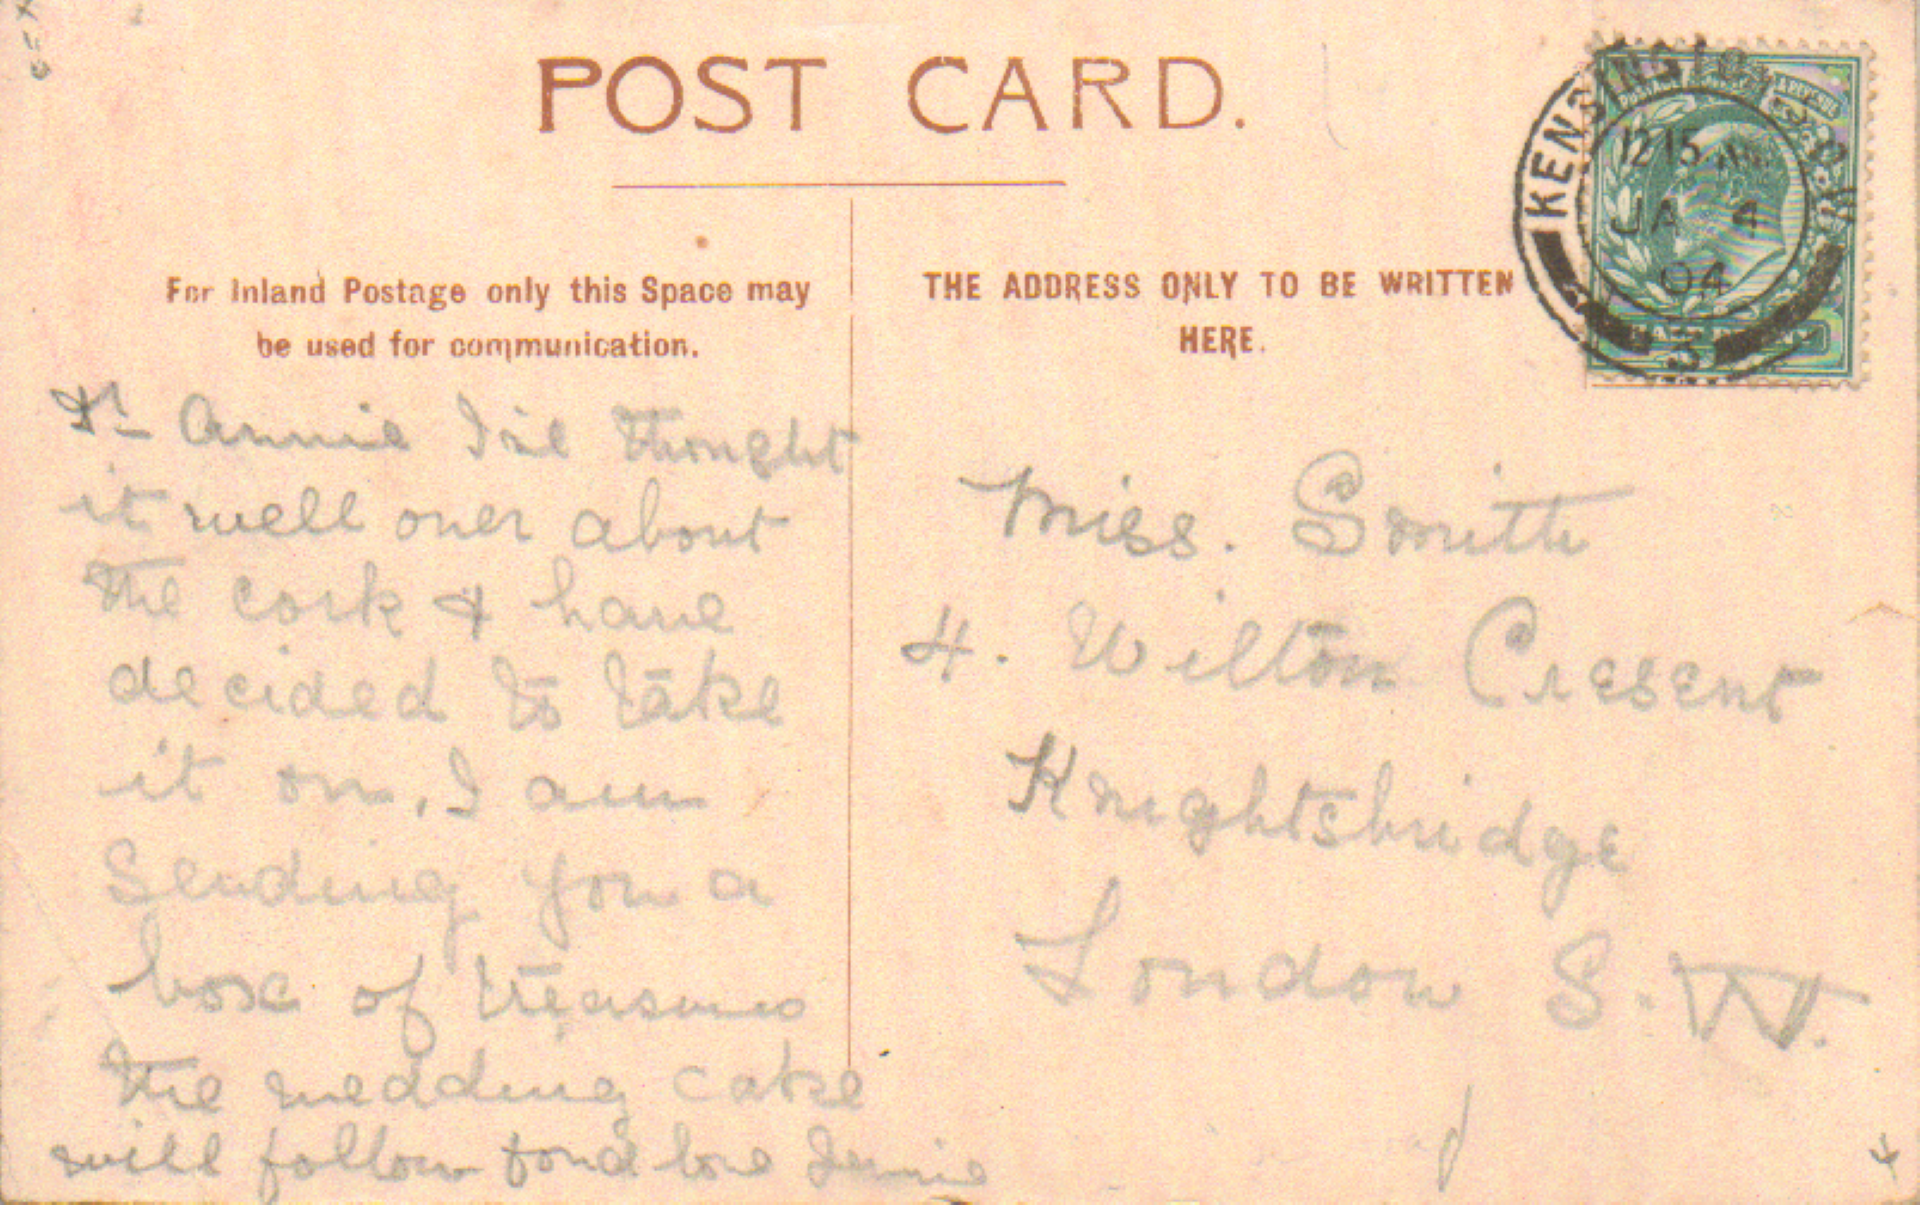 POST CARD.
For Inland Postage only this Space may
be used for communication.
THE ADDRESS ONLY TO BE WRITTEN
HERE.
KENSINGTON S.O. W
12 15
JA 4
04
3
Dr Annie I've thought
it well over about
the cork & have
decided to take
it on. I am
Sending you a
box of treasures
the wedding cake
will follow fond love Jennie
Miss. Smith
4. Wilton Cresent
Knightsbridge
London S. W.